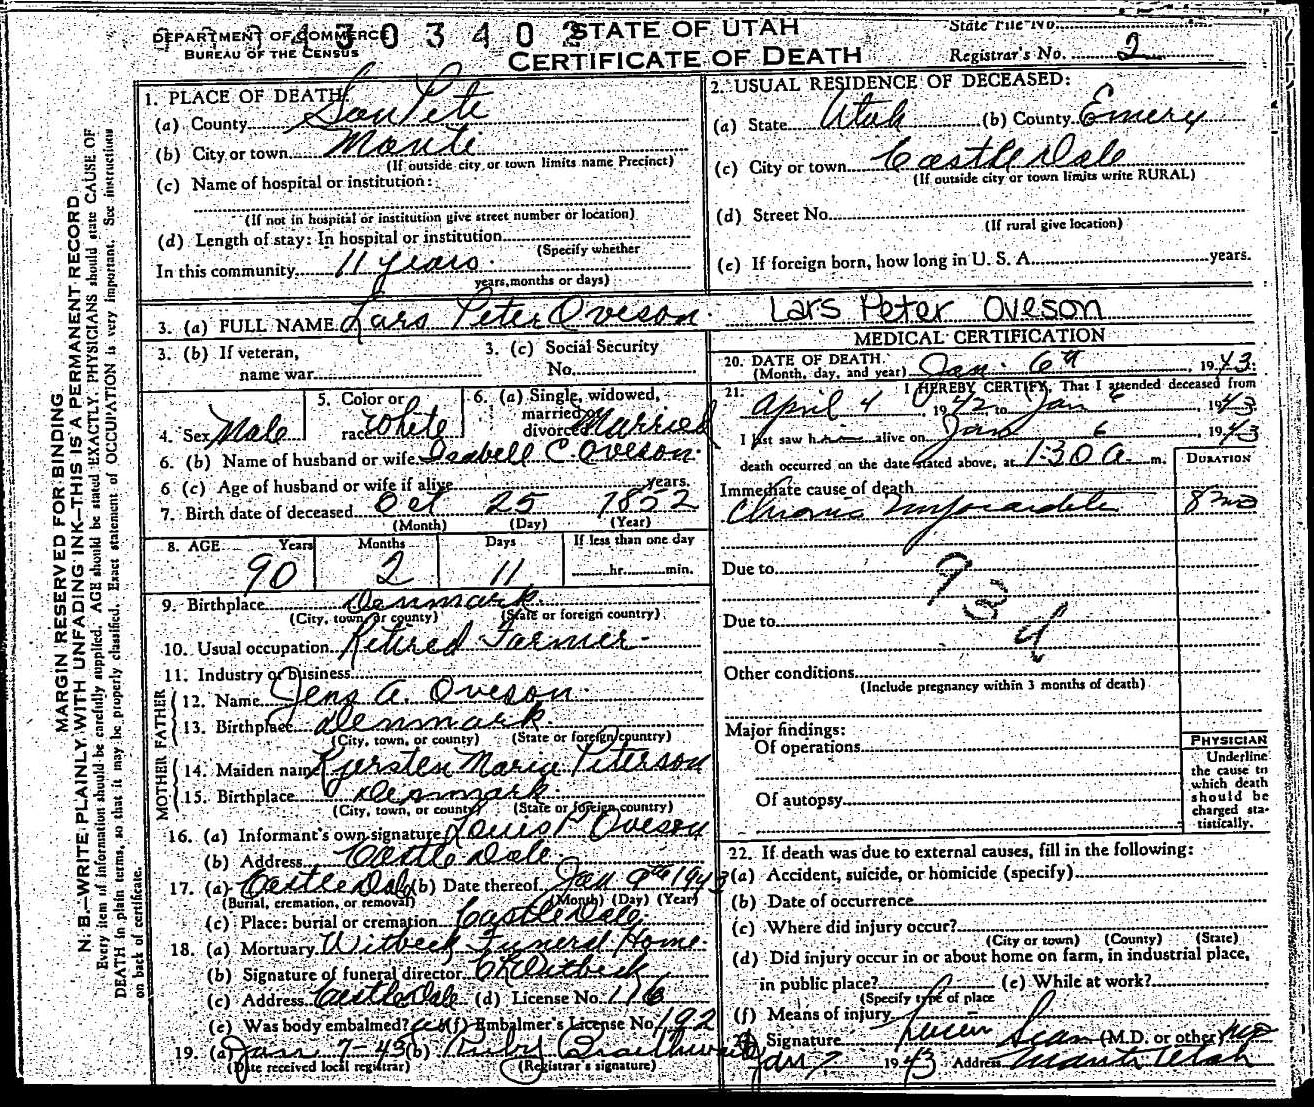 DEPARTMENT OF COMMERCE
BUREAU OF THE CENSUS
4303402
STATE OF UTAH
CERTIFICATE OF DEATH
State File No.
Registrar's No. 2
MARGIN RESERVED FOR BINDING
N. B.—WRITE PLAINLY, WITH UNFADING INK—THIS IS A PERMANENT RECORD
Every item of information should be carefully supplied. AGE should be stated EXACTLY. PHYSICIANS should state CAUSE OF
DEATH in plain terms, so that it may be properly classified. Exact statement of OCCUPATION is very important. See instructions
on back of certificate.
1. PLACE OF DEATH:
(a) County SanPete
(b) City or town Manti
(If outside city or town limits name Precinct)
(c) Name of hospital or institution:
(If not in hospital or institution give street number or location)
(d) Length of stay: In hospital or institution
(Specify whether
In this community 11 years.
years, months or days)
2. USUAL RESIDENCE OF DECEASED:
(a) State Utah (b) County Emery
(c) City or town Castle Dale
(If outside city or town limits write RURAL)
(d) Street No.
(If rural give location)
(e) If foreign born, how long in U. S. A. years.
3. (a) FULL NAME Lars Peter Oveson. Lars Peter Oveson
3. (b) If veteran,
name war
3. (c) Social Security
No.
4. Sex Male
5. Color or
race White
6. (a) Single, widowed,
married or
divorced Married
6. (b) Name of husband or wife Isabell C. Oveson.
6 (c) Age of husband or wife if alive years.
7. Birth date of deceased Oct 25 1852
(Month) (Day) (Year)
8. AGE Years Months Days If less than one day
90 2 11 hr. min.
9. Birthplace Denmark
(City, town, or county) (State or foreign country)
10. Usual occupation Retired Farmer
11. Industry or business
FATHER
12. Name Jens A. Oveson
13. Birthplace Denmark
(City, town, or county) (State or foreign country)
MOTHER
14. Maiden name Kjersten Marie Peterson
15. Birthplace Denmark
(City, town, or county) (State or foreign country)
16. (a) Informant's own signature Louis P Oveson
(b) Address Castle Dale
17. (a) Castle Dale (b) Date thereof Jan 9th 1943
(Burial, cremation, or removal) (Month) (Day) (Year)
(c) Place: burial or cremation Castle Dale
18. (a) Mortuary Witbeck Funeral Home.
(b) Signature of funeral director Witbeck
(c) Address Castle Dale (d) License No. 116
(e) Was body embalmed? yes (f) Embalmer's License No. 192
19. (a) Jan 7-43 (b) Ruby Braithwaite
(Date received local registrar) (Registrar's signature)
MEDICAL CERTIFICATION
20. DATE OF DEATH
(Month, day, and year) Jan. 6th, 1943.
21. I HEREBY CERTIFY, That I attended deceased from
April 4, 1942 to Jan 6, 1943
I last saw h alive on Jan 6, 1943
death occurred on the date stated above, at 1:30 A. m.
DURATION
Immediate cause of death
Chronic Myocarditis 8 mo
Due to
93d
Due to
Other conditions
(Include pregnancy within 3 months of death)
Major findings:
Of operations
Of autopsy
PHYSICIAN
Underline
the cause to
which death
should be
charged sta-
tistically.
22. If death was due to external causes, fill in the following:
(a) Accident, suicide, or homicide (specify)
(b) Date of occurrence
(c) Where did injury occur?
(City or town) (County) (State)
(d) Did injury occur in or about home on farm, in industrial place,
in public place? (e) While at work?
(Specify type of place
(f) Means of injury
Signature (M.D. or other) MD
Jan 7 1943 Address Manti Utah